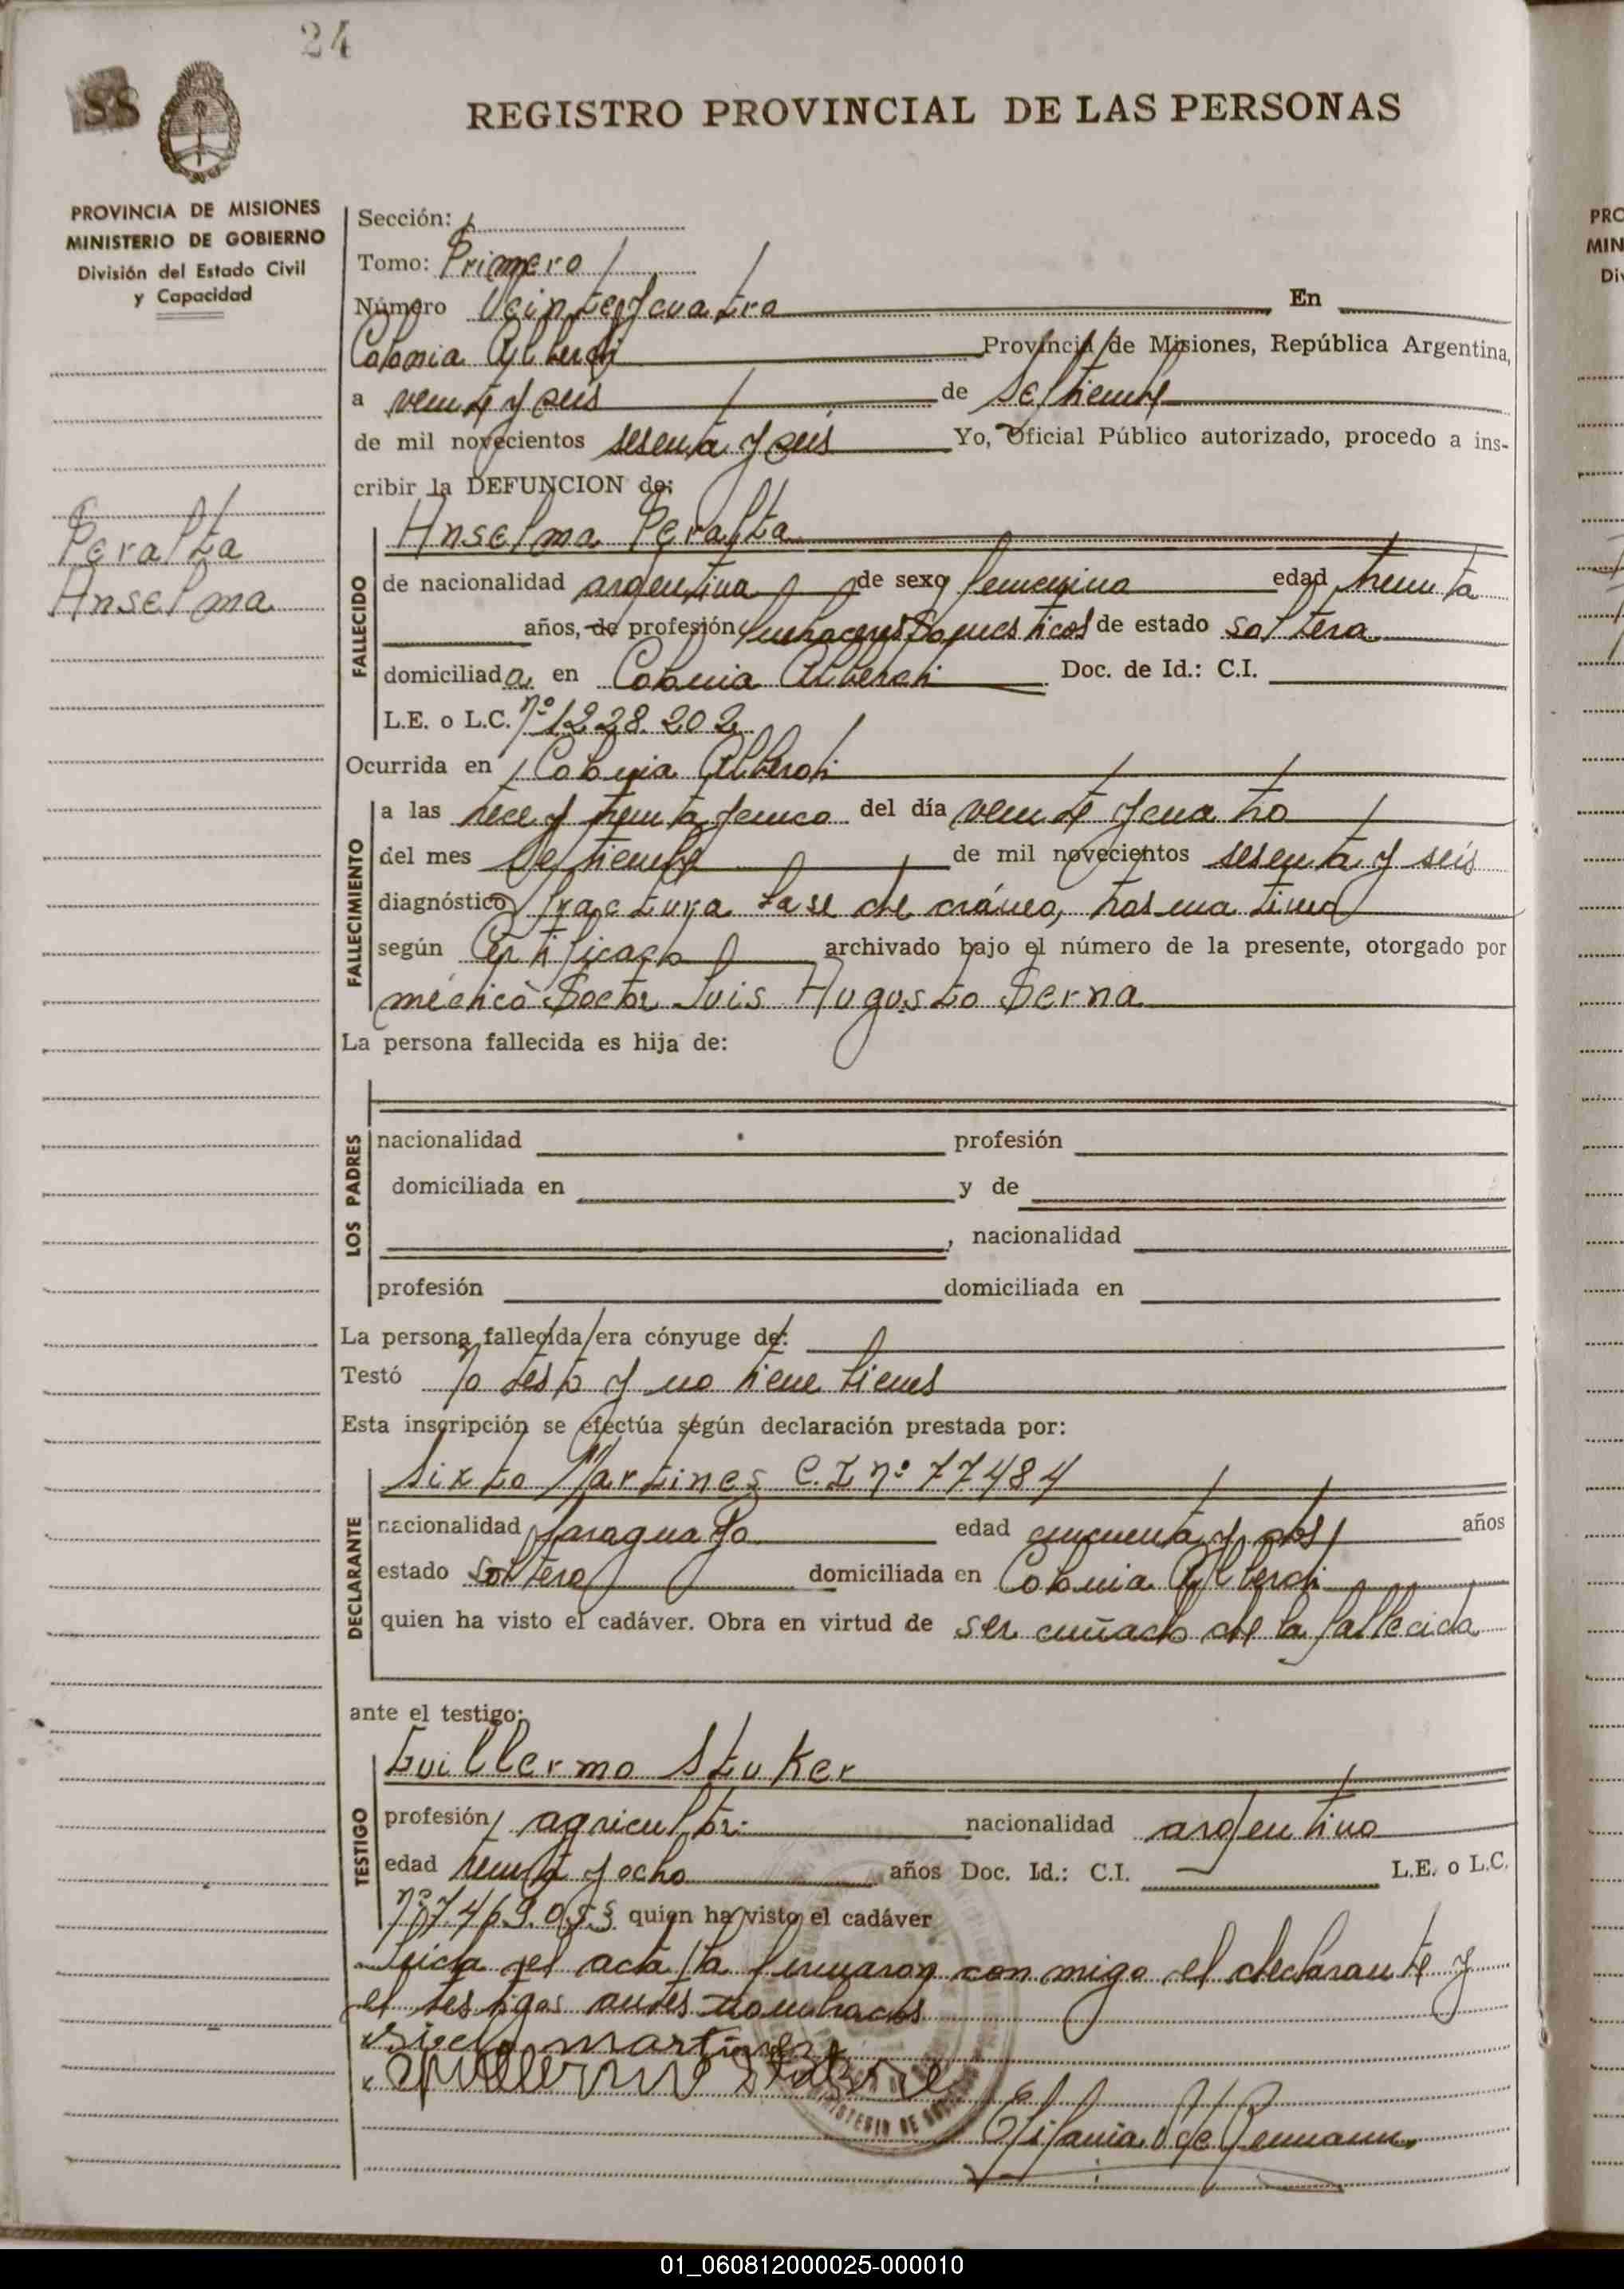 24
SS
REGISTRO PROVINCIAL DE LAS PERSONAS
PROVINCIA DE MISIONES
MINISTERIO DE GOBIERNO
División del Estado Civil
y Capacidad
Peralta
Anselma
Sección:
Tomo: Primero
Número Veinte y cuatro En
Colonia Alberdi Provincia de Misiones, República Argentina,
a veinte y seis de Setiembre
de mil novecientos sesenta y seis Yo, Oficial Público autorizado, procedo a ins-
cribir la DEFUNCION de:
FALLECIDO
Anselma Peralta
de nacionalidad argentina de sexo femenino edad treinta
años, de profesión quehaceres domesticos de estado soltera
domiciliada en Colonia Alberdi Doc. de Id.: C.I.
L.E. o L.C. nº 1228.202
Ocurrida en Colonia Alberdi
FALLECIMIENTO
a las trece y treinta y cinco del día veinte y cuatro
del mes Setiembre de mil novecientos sesenta y seis
diagnóstico fractura base de cráneo,
según Certificado archivado bajo el número de la presente, otorgado por
médico Doctor Luis Augusto Derna
La persona fallecida es hija de:
LOS PADRES
nacionalidad profesión
domiciliada en y de
, nacionalidad
profesión domiciliada en
La persona fallecida era cónyuge de:
Testó No testó y no tiene bienes
Esta inscripción se efectúa según declaración prestada por:
DECLARANTE
Sixto Martines C.I nº 77484
nacionalidad paraguayo edad cincuenta y dos años
estado soltero domiciliada en Colonia Alberdi
quien ha visto el cadáver. Obra en virtud de ser cuñado de la fallecida
ante el testigo:
TESTIGO
Guillermo Stuker
profesión agricultor nacionalidad argentino
edad treinta y ocho años Doc. Id.: C.I. L.E. o L.C.
nº 7.469.053 quien ha visto el cadáver
Leida el acta la firmaron con migo el declarante y
el testigos antes nombrados
x martines
x
PRO
MIN
Div
01_060812000025-000010